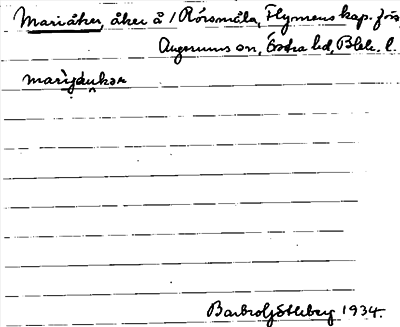 Mariåker, åker å 1 Rörsmåla, Flymens kap. förs
Augerums sn, Östra hd, Blek. l.
Barbro Göthberg 1934.